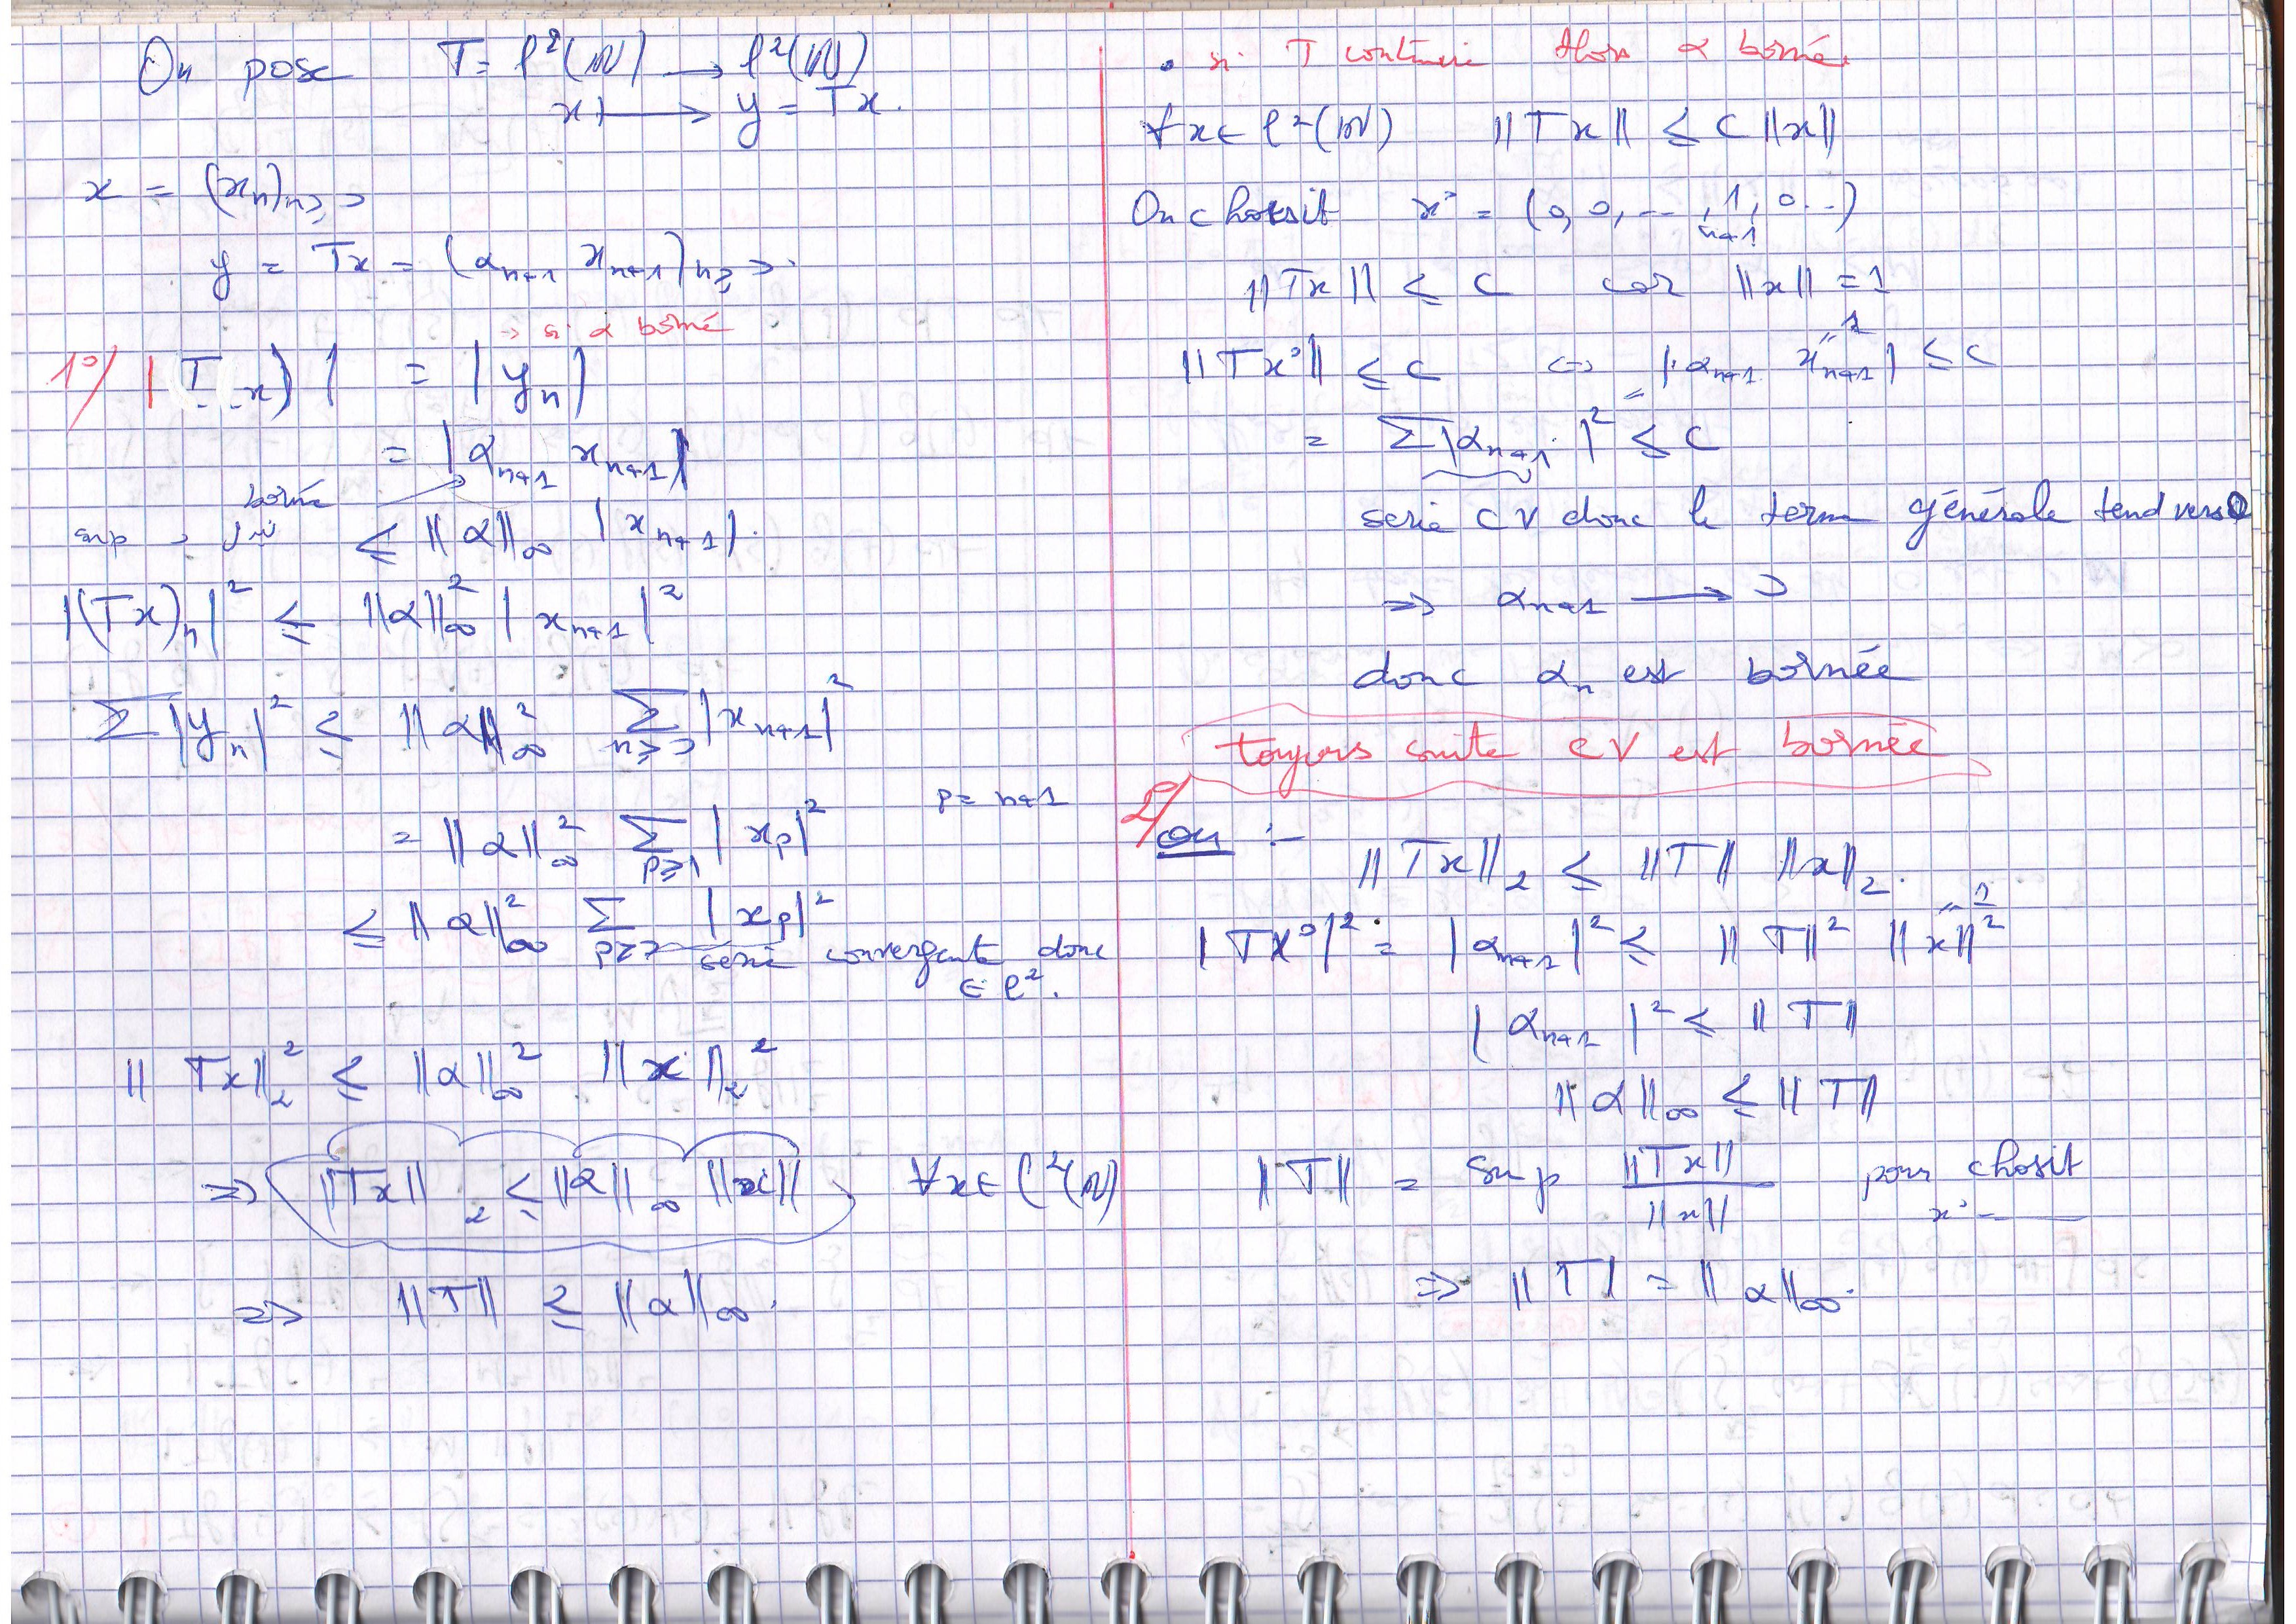 On pose T= ℓ²(ℕ) → ℓ²(ℕ)
x ↦ y = Tx.
x = (xₙ)ₙ≥₀
y = Tx = (αₙ₊₁ xₙ₊₁)ₙ≥₀.
→ si α borné
1°/ |T(x)| = |yₙ|
= |αₙ₊₁ xₙ₊₁|
borné
sup
≤ ‖α‖∞ |xₙ₊₁|.
|(Tx)ₙ|² ≤ ‖α‖∞² |xₙ₊₁|²
Σ|yₙ|² ≤ ‖α‖∞² Σₙ≥₀ |xₙ₊₁|²
p = n+1
= ‖α‖∞² Σ_{p≥1} |xₚ|²
≤ ‖α‖∞² Σ_{p≥0} |xₚ|²
serie convergente donc
∈ ℓ².
‖Tx‖₂² ≤ ‖α‖∞² ‖x‖₂²
⇒ ‖Tx‖₂ ≤ ‖α‖∞ ‖x‖ ∀x∈ ℓ²(ℕ)
⇒ ‖T‖ ≤ ‖α‖∞.
• si T continue alors α borné.
∀x∈ ℓ²(ℕ) ‖Tx‖ ≤ C ‖x‖
On choisit x° = (0, 0, --- , 1, 0...)
n+1
‖Tx‖ ≤ C car ‖x‖ = 1
1
‖Tx°‖ ≤ C ⇔ |αₙ₊₁ xₙ₊₁| ≤ C
= Σ|αₙ₊₁|² ≤ C
serie CV donc le terme générale tend vers 0
⇒ αₙ₊₁ → 0
donc αₙ est bornée
toujours suite CV est bornée
2°/ ou :- ‖Tx‖₂ ≤ ‖T‖ ‖x‖₂.
1
|TX°|² = |αₙ₊₁|² ≤ ‖T‖² ‖x‖²
|αₙ₊₁|² ≤ ‖T‖
‖α‖∞ ≤ ‖T‖
‖T‖ = Sup ‖Tx‖/‖x‖ pour chosit
x° -
⇒ ‖T‖ = ‖α‖∞.